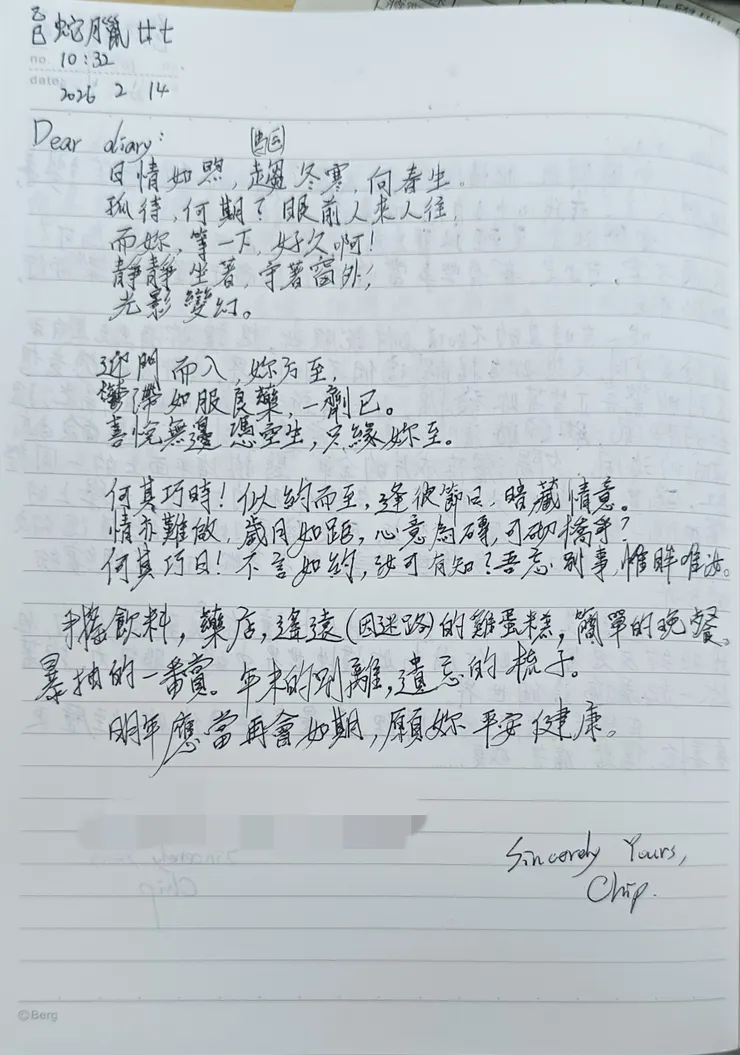 乙巳 蛇 臘 廿七
no. 10:32
date: 2026 2 14
Dear diary:
日情如煦,趨冬寒,向春生。
孤待,何期?眼前人來人往,
而妳,等一下,好久啊!
靜靜坐著,守著窗外,
光影變幻。
迎門而入,妳方至,
如服良藥,一劑已。
喜悅無邊憑空生,只緣妳至。
何其巧時!似約而至,逢彼節日,暗藏情意。
情亦難做,歲月如距,心意為磚,可砌橋乎?
何其巧日!不言如約,汝可有知?吾忘別事,惟眸唯汝。
手搖飲料,藥店,遙遠(因迷路)的雞蛋糕,簡單的晚餐。
暴抽的一番賞。年末的別離,遺忘的梳子。
明年應當再會如期,願妳平安健康。
Sincerely Yours,
Chip.
©Berg